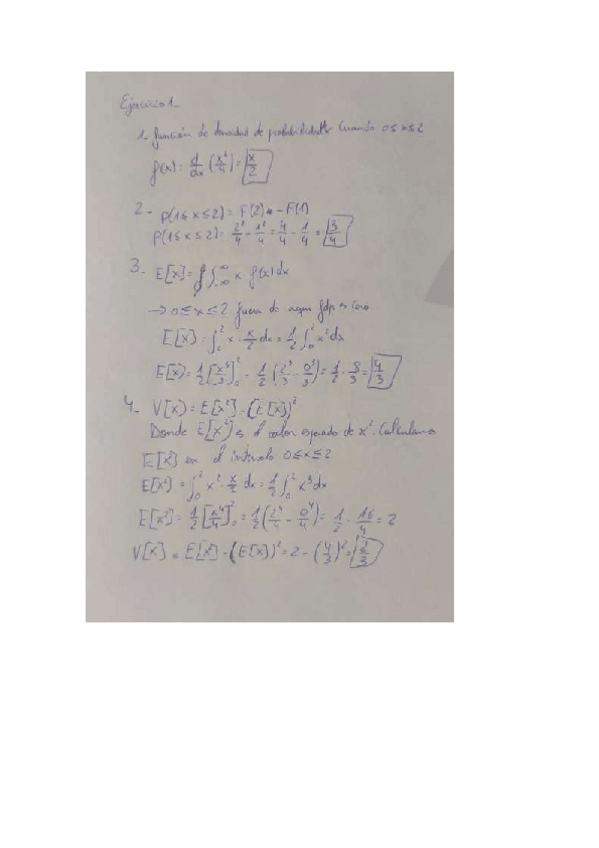 Ejercicio 1-
1- función de densidad de probabilidad Cuando 0≤x≤2
f(x) = d/dx (x²/4) = x/2
2- P(1≤x≤2) = F(2) - F(1)
P(1≤x≤2) = 2²/4 - 1²/4 = 4/4 - 1/4 = 3/4
3- E[x] = ∫_{-∞}^{∞} x · f(x) dx
→ 0≤x≤2 fuera de aquí fdp es cero
E[x] = ∫ x · x/2 dx = 1/2 ∫_0^2 x² dx
E[x] = 1/2 [x³/3]_0^2 - 1/2 (2³/3 - 0³/3) = 1/2 · 8/3 = 4/3
4- V[x] = E[x²] - (E[x])²
Donde E[x²] es el valor esperado de x². Calculamos
E[x²] en el intervalo 0≤x≤2
E[x²] = ∫_0^2 x² · x/2 dx = 1/2 ∫_0^2 x³ dx
E[x²] = 1/2 [x⁴/4]_0^2 = 1/2 (2⁴/4 - 0⁴/4) = 1/2 · 16/4 = 2
V[x] = E[x²] - (E[x])² = 2 - (4/3)² = 2/3